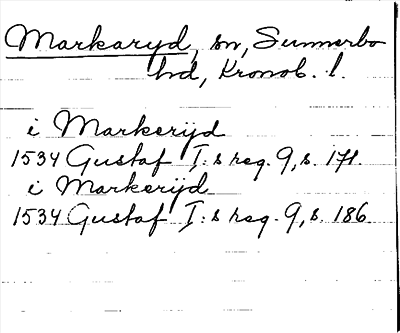 Markaryd, sn, Sunnerbo
hd, Kronob. l.
i Markerijd
1534 Gustaf I:s reg. 9, s. 171.
i Markerijd
1534 Gustaf I:s reg. 9, s. 186.